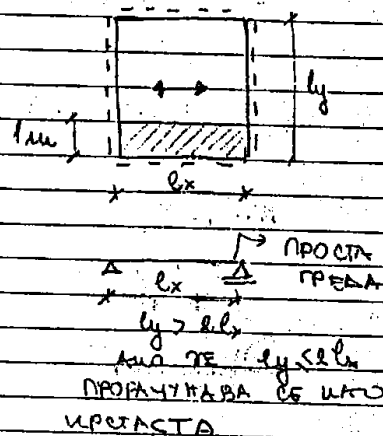 ly
1m
lx
ПРОСТА
ГРЕДА
lx
ly > 2lx
АКО ЈЕ ly < 2lx
ПРОРАЧУНАВА СЕ КАО
КРСТАСТА